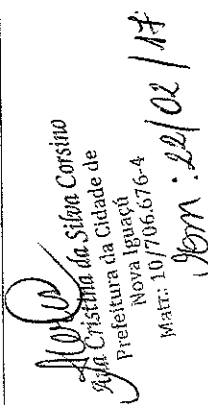 Ana Cristina da Silva Corsino
Prefeitura da Cidade de
Nova Iguaçú
Matr.: 10/706.676-4
Em: 22/02/17